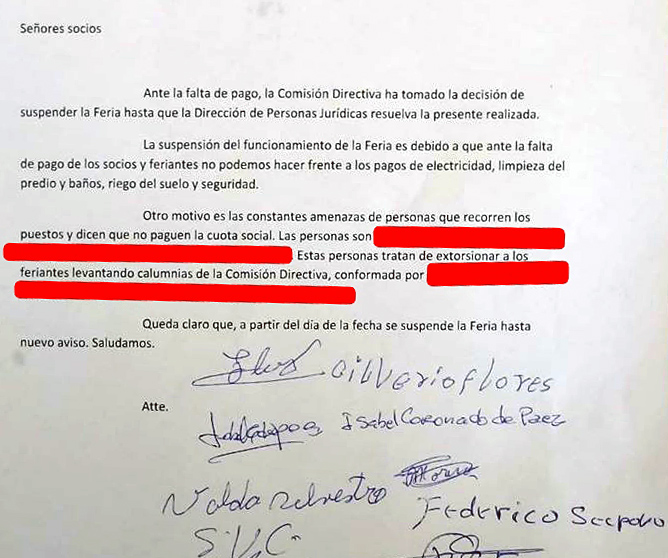 Señores socios
Ante la falta de pago, la Comisión Directiva ha tomado la decisión de
suspender la Feria hasta que la Dirección de Personas Jurídicas resuelva la presente realizada.
La suspensión del funcionamiento de la Feria es debido a que ante la falta
de pago de los socios y feriantes no podemos hacer frente a los pagos de electricidad, limpieza del
predio y baños, riego del suelo y seguridad.
Otro motivo es las constantes amenazas de personas que recorren los
puestos y dicen que no paguen la cuota social. Las personas son
. Estas personas tratan de extorsionar a los
feriantes levantando calumnias de la Comisión Directiva, conformada por
Queda claro que, a partir del día de la fecha se suspende la Feria hasta
nuevo aviso. Saludamos.
Silverio flores
Atte.
Isabel Coronado de Paez
Federico